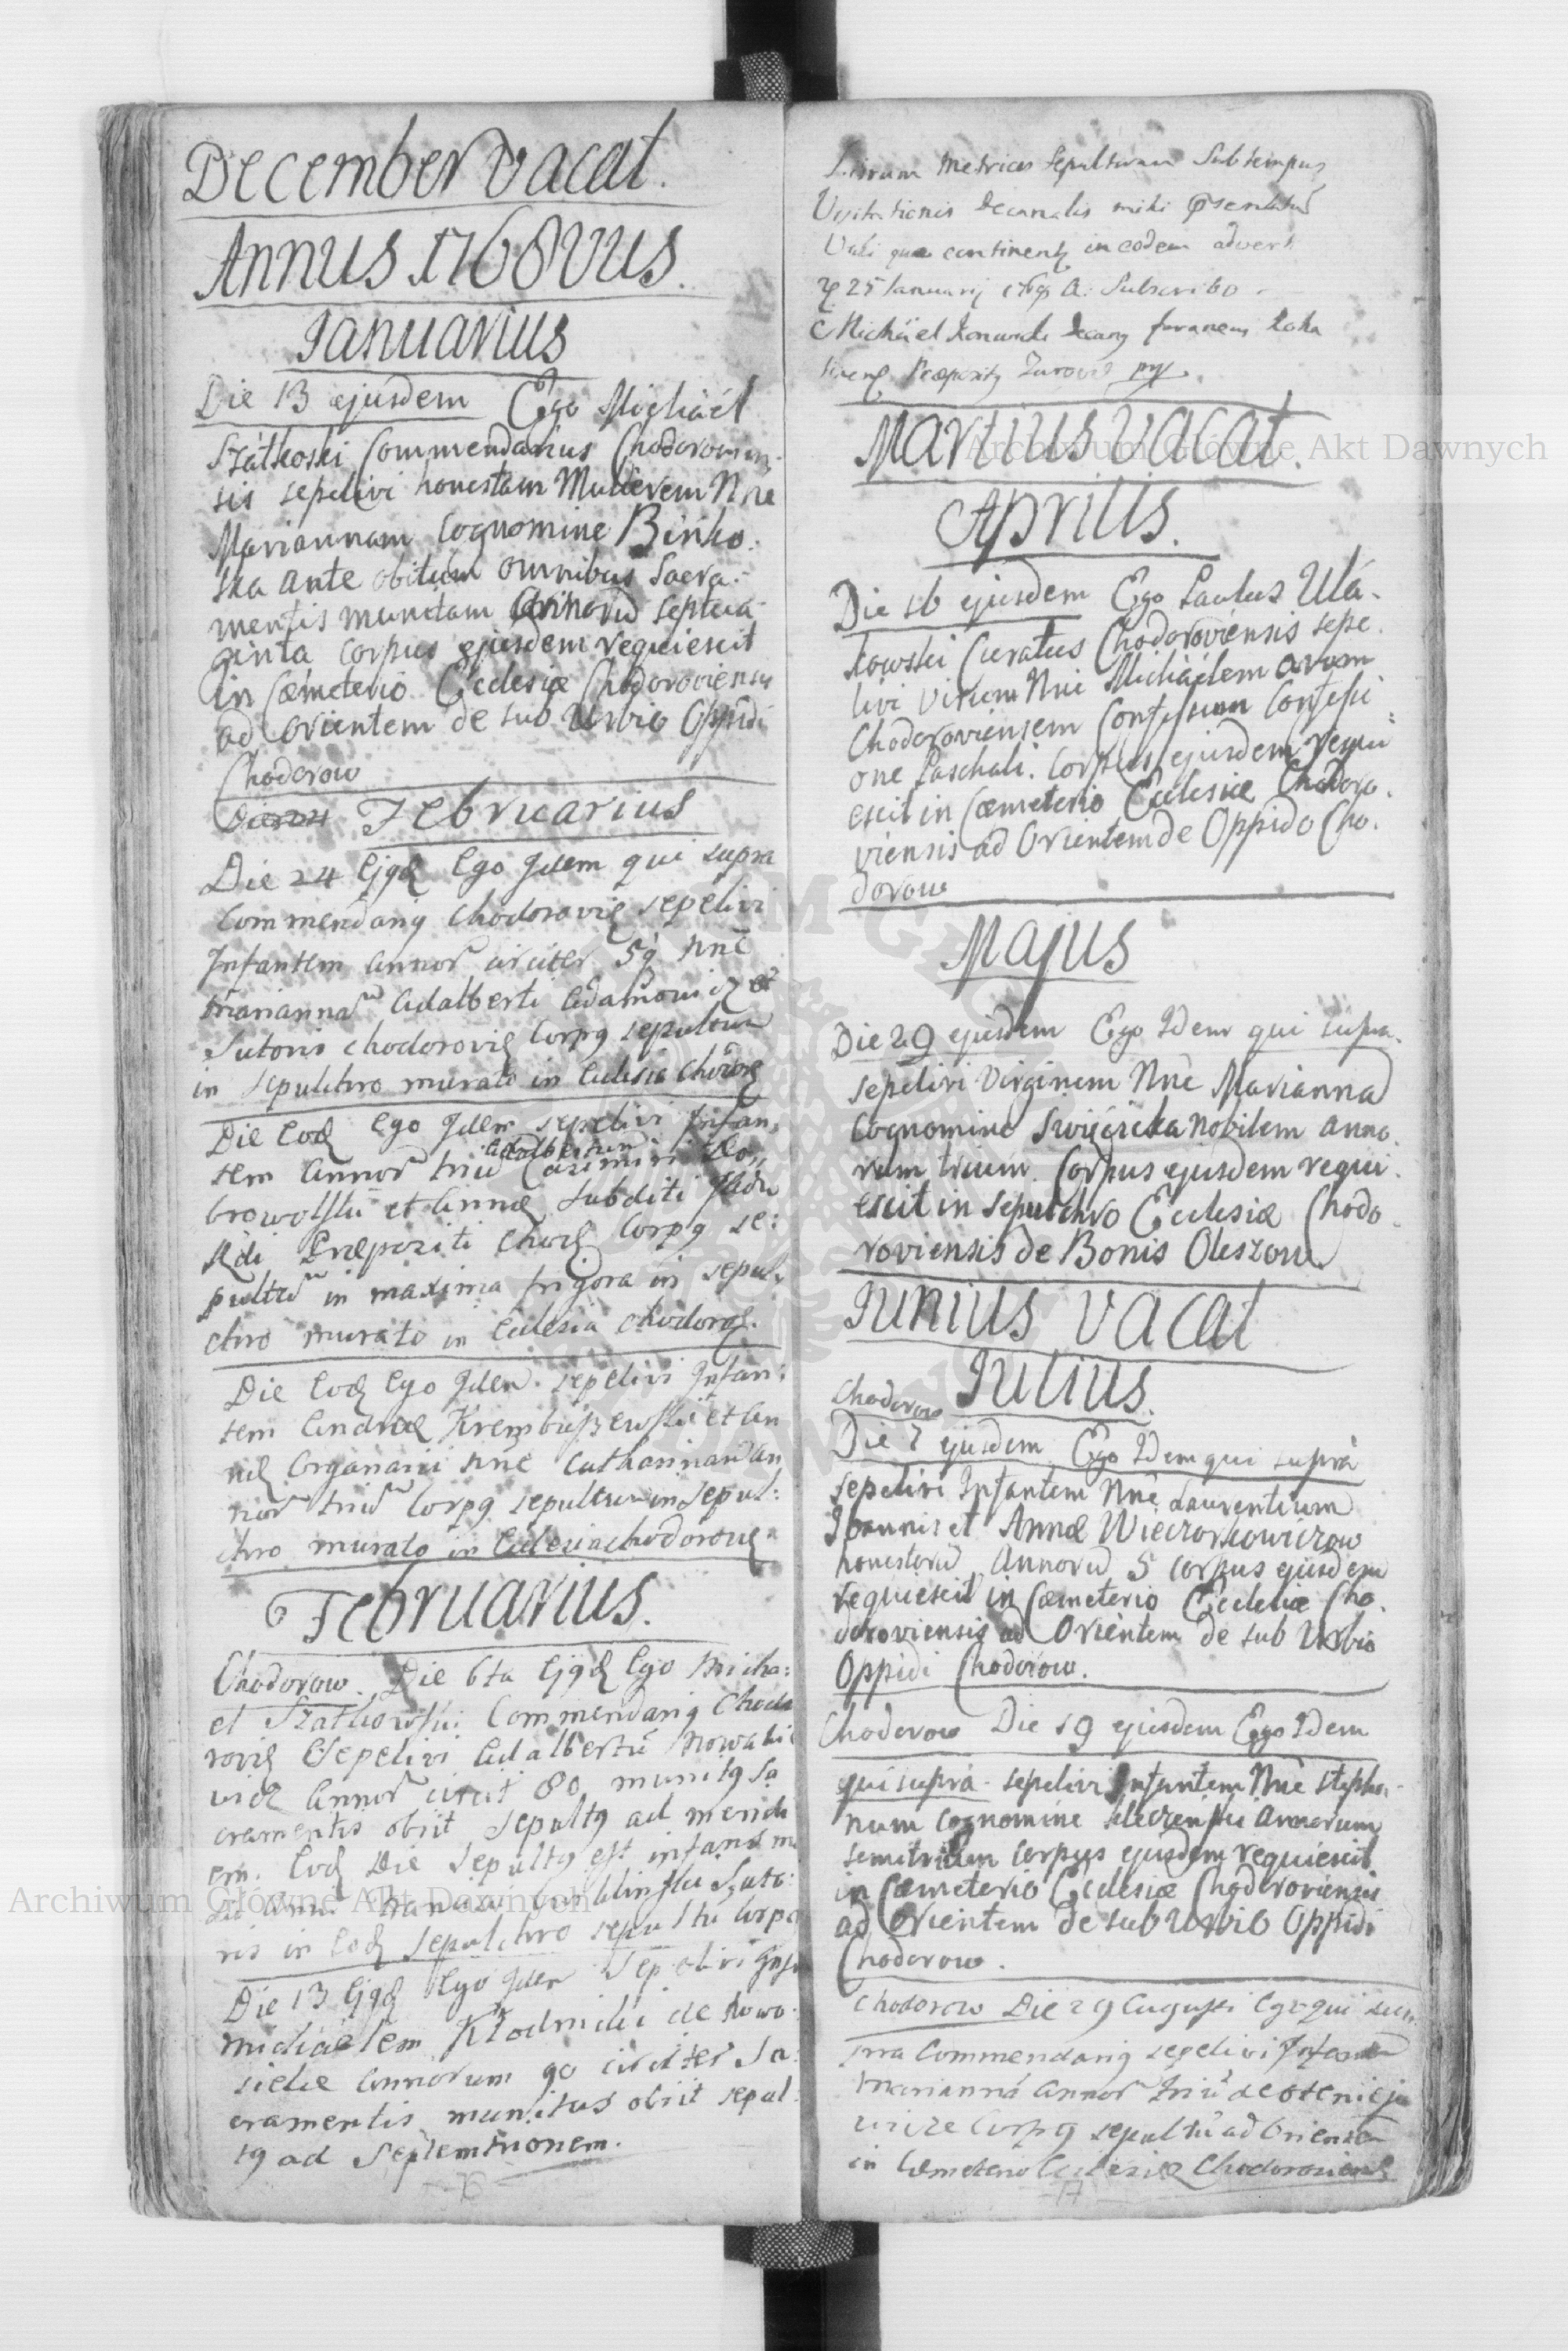 December vacat.
Annus 1768vus.
Ianuarius
Die 13 ejusdem Ego Michaël
Szátkoski Commendarius Chodorovien-
sis sepelivi honestam Mulierem Nne
Mariannam Cognomine Binko.
ska ante obitum omnibus Sacra.
mentis munitam Annorū septua
ginta Corpus ejusdem requiescit
in Cæmeterio Ecclesiæ Chodoroviensis
ad Orientem de sub Urbio Oppidi
Chodorow
Februarius
Die 24 Ejqd Ego Idem qui supra
Commendariq Chodorovię sepelivi
Infantem Annor circiter 5q nne
Mariannā Adalberti Adamowicz et
Sutoris Chodorovię Corpq sepultum
in sepulchro murato in Eclesia
Die Eod Ego Idem sepelivi Infan,
tem Annor triū Adalbertum Casimiri Do,,
browolski et Annæ subditi
Rdi Præpoziti Corpq se:
pultū in maxima frigora in sepul,
chro murato in Eclesia Chodorov.
Die Eod Ego Idem sepelivi Infan:
tem Andreæ et An
næ Organarii nne Catharinam An
nor triū Corpq sepultum in Sepul:
chro murato in Eclesia Chodorovię
Februarius.
Chodorow. Die 6ta Ejqd Ego Micha:
el Szatkowski Commendariq Chodo
rovię Sepelivi Adalbertū Nowaki
Annor circit 80 munitq Sa
cramentis obiit Sepultq ad meridi
em. Eod Die Sepultq est infans
Anni
ris in Eod Sepulchro sepultū Corpq
Die 13 Ejqd Ego Idem Sepelivi
Michäelem Kłodnicki de Nowo
sielce Annorum 90 circiter Sa:
cramentis munitus obiit sepul
tq ad Septemtrionem.
Librum Metrices Sepulturum Sub tempus
Visitationis Decanalis mihi
Vidi quæ in eodem advert
25 Ianuarij A: Subscribo
Michäel Decanq foraneus Roha
tinens Præpositq
Martius vacat.
Aprilis.
Die 16 ejusdem Ego Paulus Ulá-
kowski Curatus Chodoroviensis sepe.
livi Virum Nne Michäelem
Chodoroviensem Confessum Confessi
one Paschali. Corpus ejusdem requi
escit in Cæmeterio Ecclesiæ Chodoro.
viensis ad Orientem de Oppido Cho.
dorow
Majus
Die 29 ejusdem Ego Idem qui supra.
sepelivi Virginem Nne Mariannā
Cognomine Swięcicka Nobilem Anno.
rum trium Corpus ejusdem requi.
escit in Sepulchro Ecclesiæ Chodo.
roviensis de Bonis Oleszow
Iunius vacat
Iulius.
Chodorow
Die 7 ejusdem Ego Idem qui suprà
sepelivi Infantem Nne Laurentium
Ioannis et Annæ Wieczorkowiczow
honestorū Annorū 5 corpus ejusdem
requiescit in Cæmeterio Ecclesiæ Cho.
doroviensis ad Orientem de sub Urbio
Oppidi Chodorow.
Chodorow Die 19 ejusdem Ego Idem
qui suprà sepelivi Infantem Nne Stepha-
num Cognomine Annorum
semitrium corpus ejusdem requiescit
in Cæmeterio Ecclesiæ Chodoroviensis
ad Orientem de sub Urbio Oppidi
Chodorow.
Chodorow Die 29 Augusti Ego qui
pra Commendariq sepelivi Infantem
Mariannā Annor triū de
Corpq sepultū ad Orientem
in Cæmeterio Eclesiæ Chodoroviensis
Archiwum Główne Akt Dawnych
Archiwum Główne Akt Dawnych